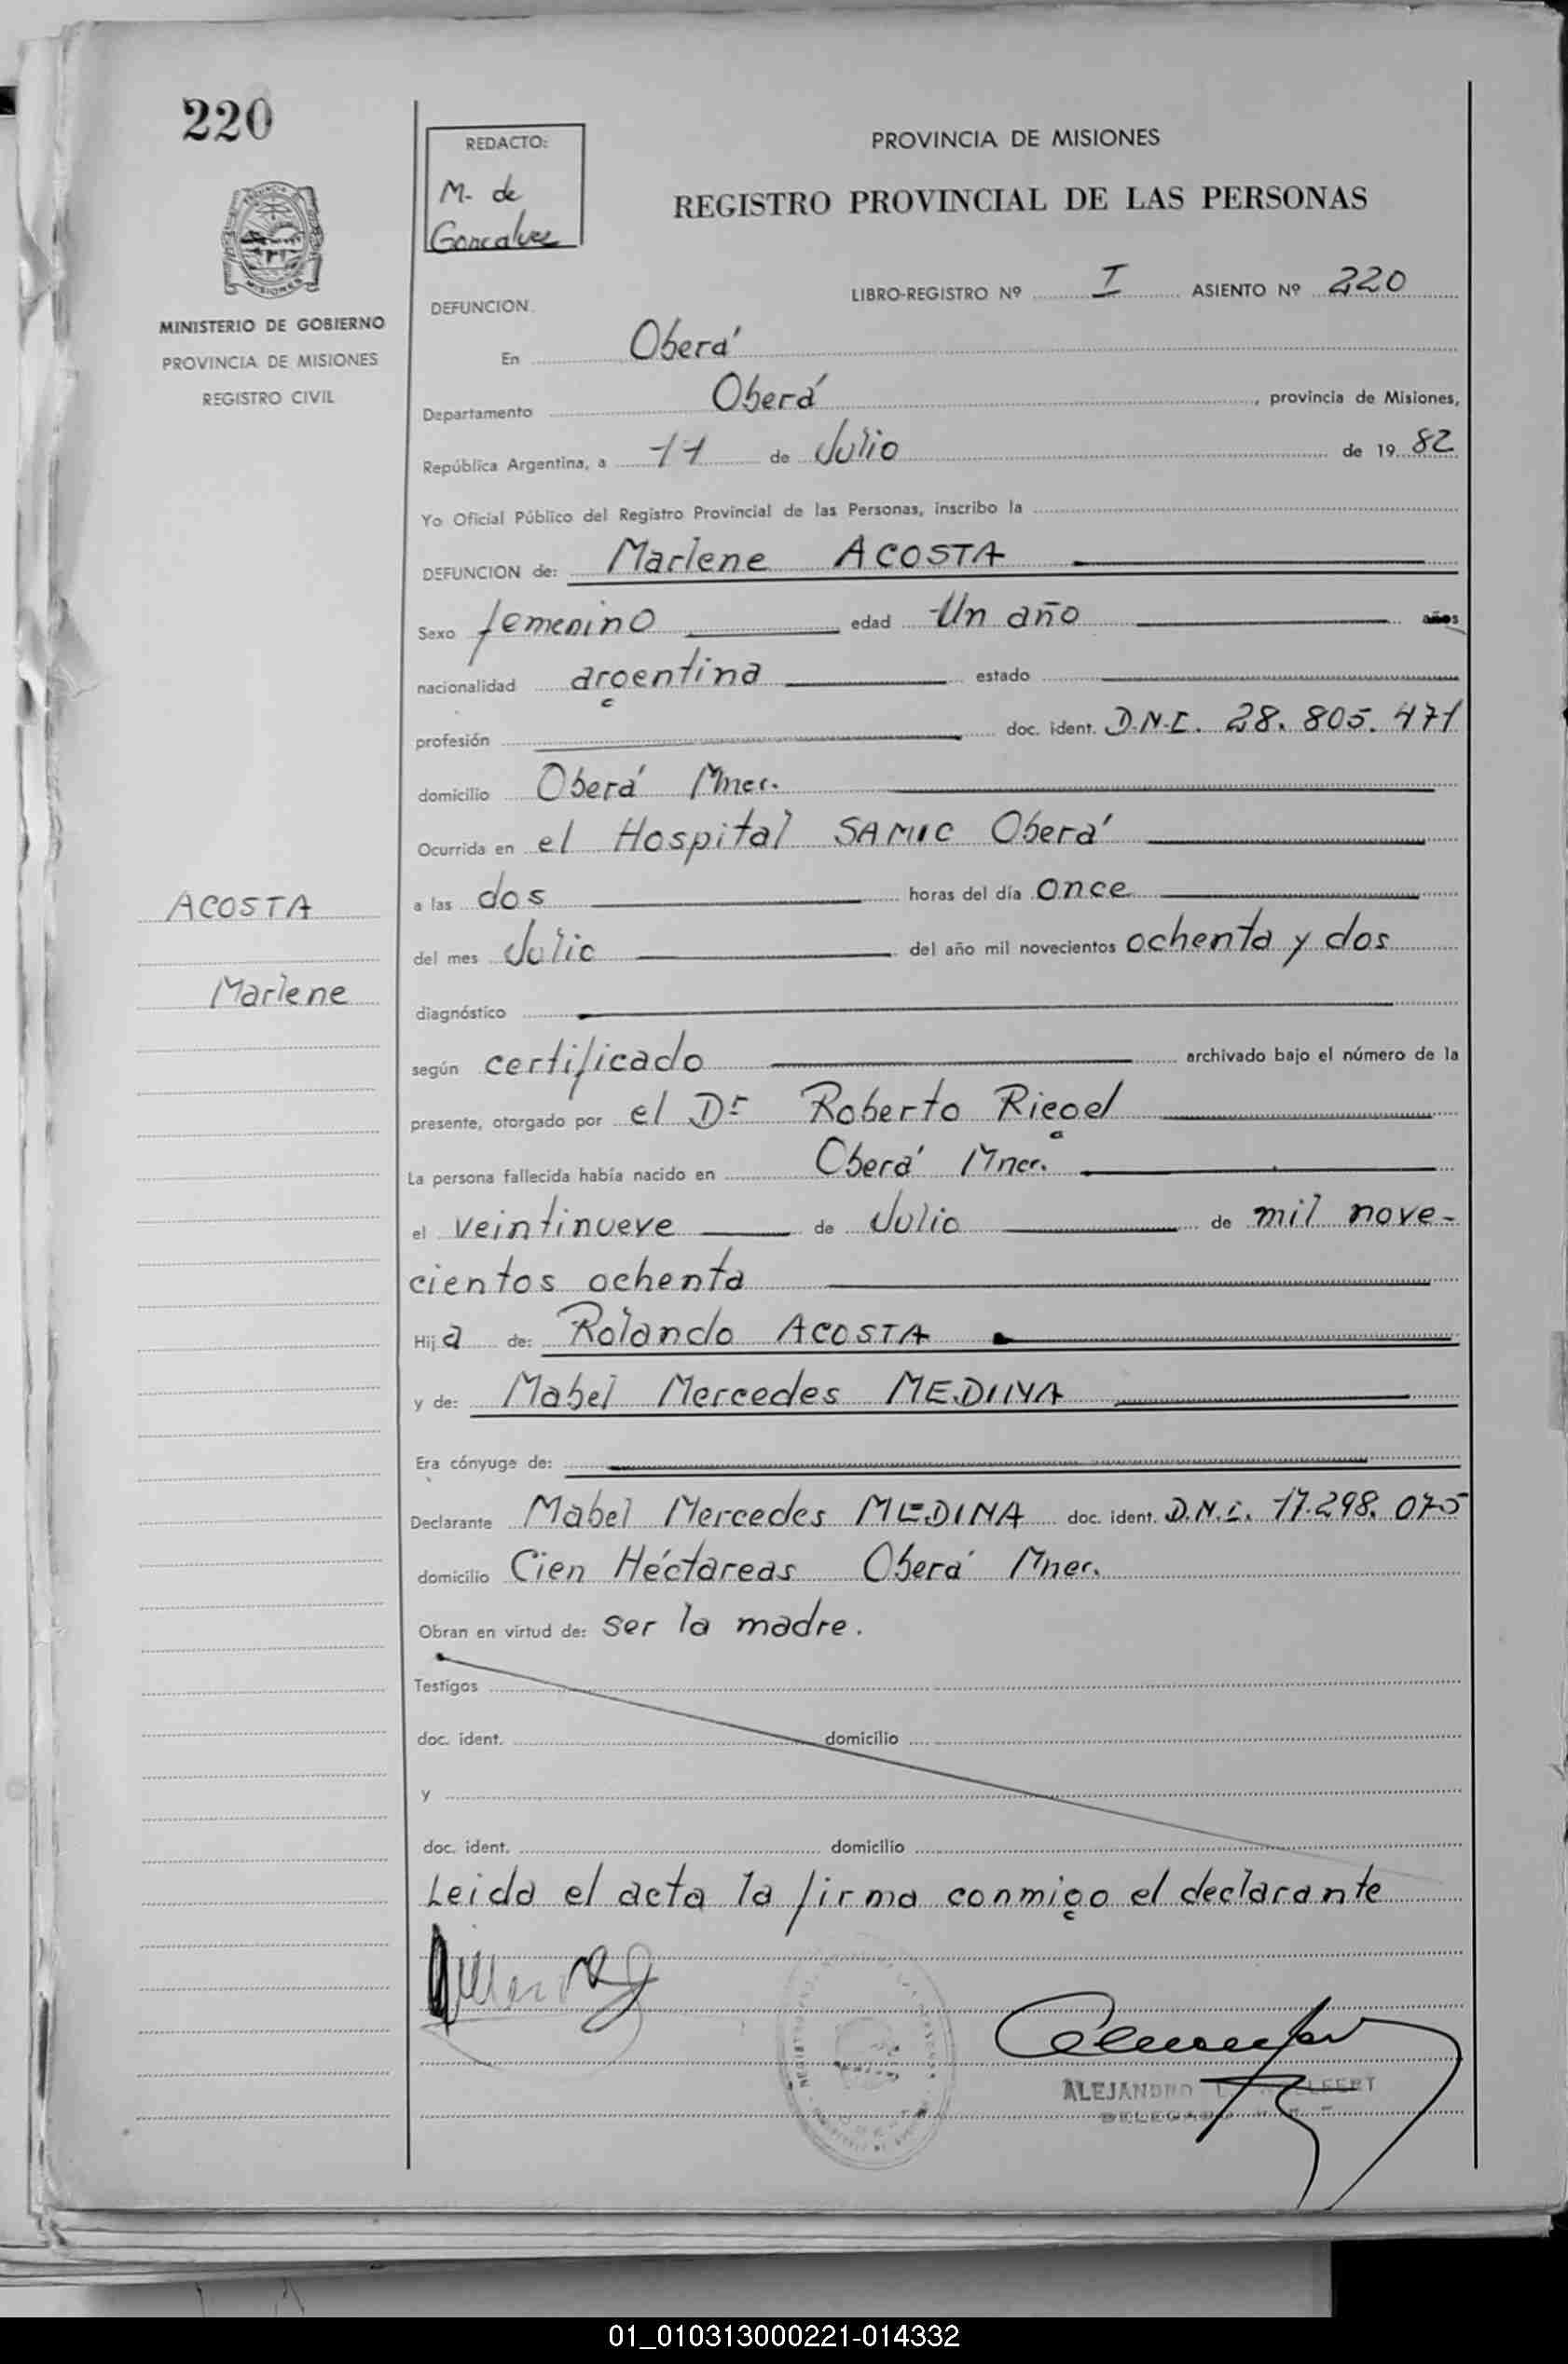 220
MISIONES
MINISTERIO DE GOBIERNO
PROVINCIA DE MISIONES
REGISTRO CIVIL
ACOSTA
Marlene
REDACTO:
M. de
Goncalvez
PROVINCIA DE MISIONES
REGISTRO PROVINCIAL DE LAS PERSONAS
LIBRO-REGISTRO Nº I ASIENTO Nº 220
DEFUNCION
En Oberá
Departamento Oberá, provincia de Misiones,
República Argentina, a 11 de Julio de 1982
Yo Oficial Público del Registro Provincial de las Personas, inscribo la
DEFUNCION de: Marlene ACOSTA
Sexo femenino edad Un año años
nacionalidad argentina estado
profesión doc. ident. D.N.I. 28.805.471
domicilio Oberá Mnes.
Ocurrida en el Hospital SAMIC Oberá
a las dos horas del día once
del mes Julio del año mil novecientos ochenta y dos
diagnóstico
según certificado archivado bajo el número de la
presente, otorgado por el Dr Roberto Riegel
La persona fallecida había nacido en Oberá Mnes.
el veintinueve de Julio de mil nove-
cientos ochenta
Hija de: Rolando ACOSTA
y de: Mabel Mercedes MEDINA
Era cónyuge de:
Declarante Mabel Mercedes MEDINA doc. ident. D.N.I. 17.298.075
domicilio Cien Héctareas Oberá Mnes.
Obran en virtud de: ser la madre.
Testigos
doc. ident. domicilio
y
doc. ident. domicilio
Leida el acta la firma conmigo el declarante
ALEJANDRO
DELEGADO
01_010313000221-014332